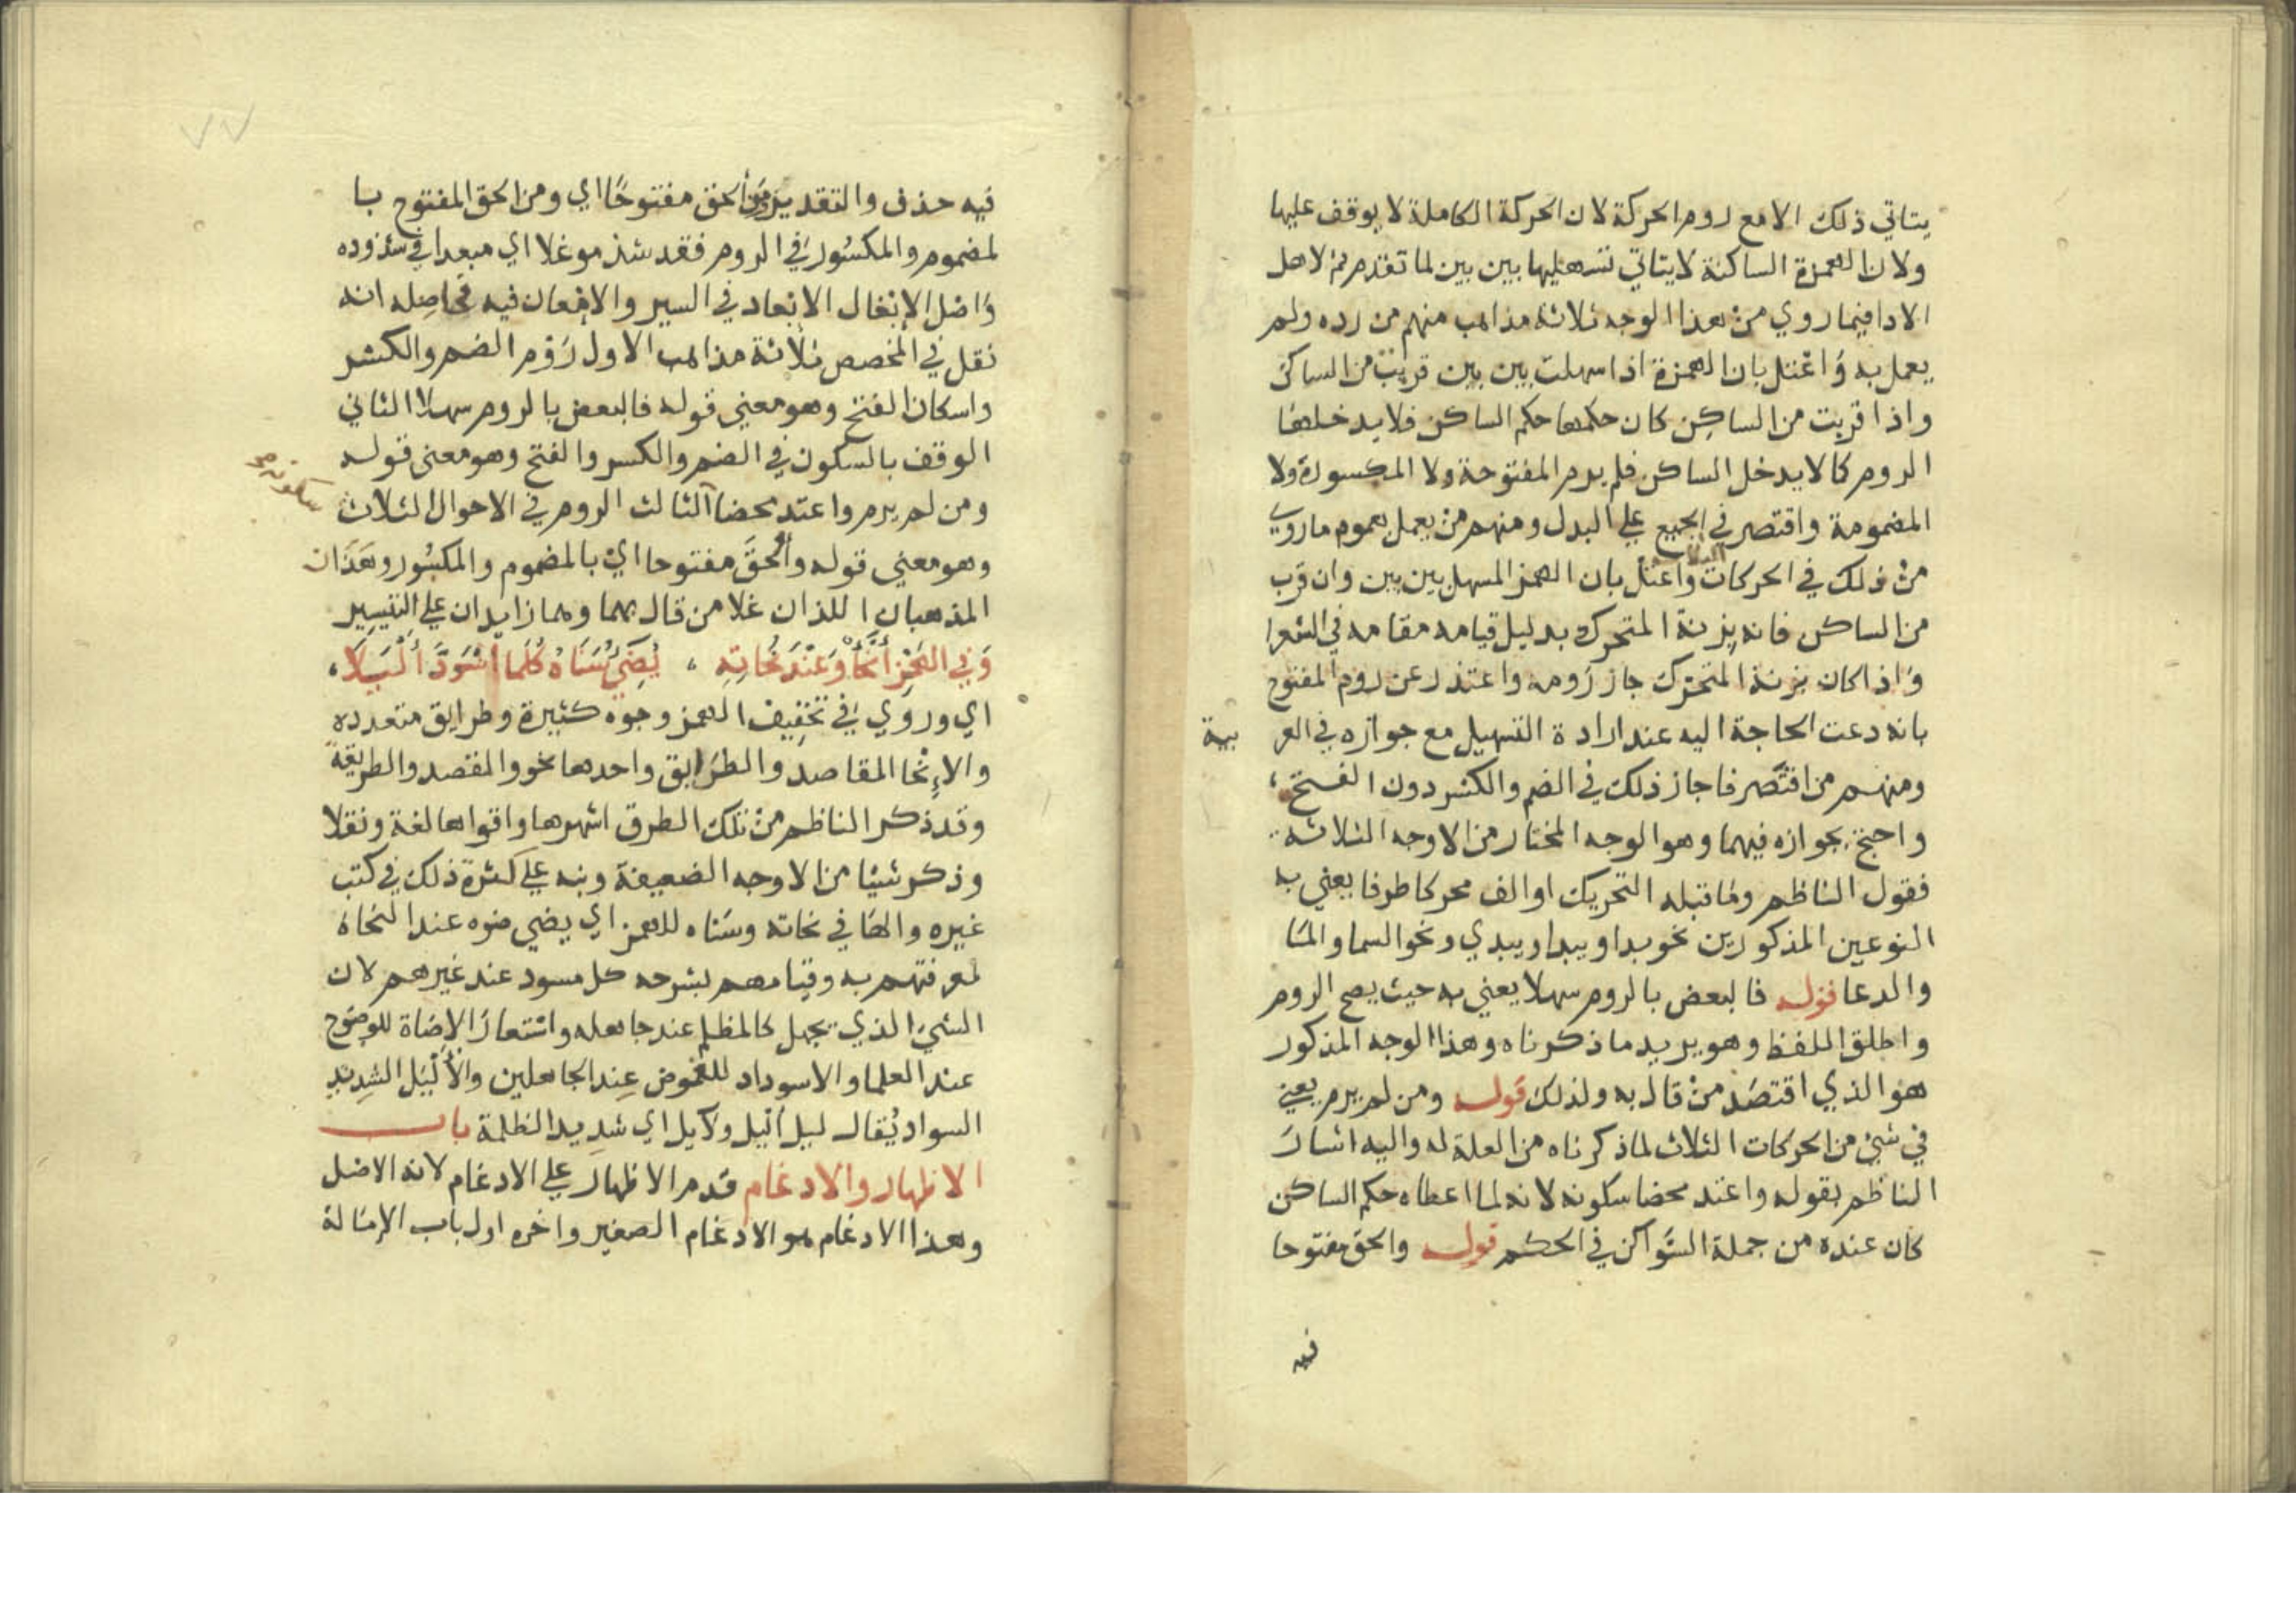 يتاتي ذلك الا مع روم الحركة لان الحركة الكاملة لا يوقف عليها
ولان الهمزة الساكنة لا يتاتي تسهيلها بين بين لما تقدم ثم لاهل
الادا فيما روي من هذا الوجه ثلاثة مذاهب منهم من رده ولم
يعمل به واعتل بان الهمزة اذا سهلت بين بين قربت من الساكن
واذا قربت من الساكن كان حكمها حكم الساكن فلا يدخلها
الروم كما لا يدخل الساكن فلم يرم المفتوحة ولا المكسورة ولا
المضمومة واقتصر في الجميع علي البدل ومنهم من يعمل بعموم ماروي
من ذلك في الحركات الثلاث واعتل بان الهمز المسهل بين بين وان قرب
من الساكن فانه بزنة المتحرك بدليل قيامه مقامه في الشعر
واذا كان بزنة المتحرك جاز رومه واعتذر عن روم المفتوح
بانه دعت الحاجة اليه عند ارادة التسهيل مع جوازه في العر بية
ومنهم من اقتصر فاجاز ذلك في الضم والكسر دون الفتح
واحتج بجوازه فيهما وهو الوجه المختار من الاوجه الثلاثة
فقول الناظم وما قبله التحريك او الف محركا طرفا يعني به
النوعين المذكورين نحو بدا ويبدا ويبدي ونحو السما والما
والدعا قوله فالبعض بالروم سهلا يعني به حيث يصح الروم
واطلق اللفظ وهو يريد ما ذكرناه وهذا الوجه المذكور
هو الذي اقتصد من قال به ولذلك قوله ومن لم يرم يعني
في شيء من الحركات الثلاث لما ذكرناه من العلة له واليه اشار
الناظم بقوله واعتد محضا سكونه لانه لما اعطاه حكم الساكن
كان عنده من جملة السواكن في الحكم قوله والحق مفتوحا
فيه
٧٧
فيه حذف والتقدير ومن ألحق مفتوحا اي ومن الحق المفتوح با
لمضموم والمكسور في الروم فقد شذ موغلا اي مبعدا في شذوذه
واصل الإيغال الابعاد في السير والامعان فيه فحاصله انه
نقل في المخصص ثلاثة مذاهب الاول روم الضم والكسر
واسكان الفتح وهو معني قوله فالبعض بالروم سهلا الثاني
الوقف بالسكون في الضم والكسر والفتح وهو معنى قوله
ومن لم يرم واعتد محضا الثالث الروم في الاحوال الثلاث
سكونه صح
وهو معني قوله وألحق مفتوحا اي بالمضموم والمكسور وهذان
المذهبان اللذان غلا من قال بهما وهما زايدان علي التيسير
وفي الهمز أنحاء وعند نحاته ، يضيء سناه كلما اسود أليلا ،
اي وروي في تخفيف الهمز وجوه كثيرة وطرايق متعدده
والانحا المقاصد والطرايق واحدها نحو والمقصد والطريقة
وقد ذكر الناظم من تلك الطرق اشهرها واقواها لغة ونقلا
وذكر شيئا من الاوجه الضعيفة ونبه علي كثرة ذلك في كتب
غيره والها في نحاته وسناه للهمز اي يضي ضوه عند النحاة
لمعرفتهم به وقيامهم بشرحه كل مسود عند غيرهم لان
الشيء الذي يجهل كالمظلم عند جاهله واستعار الاضاة للوضوح
عند العلما والاسوداد للغموض عند الجاهلين والأليل الشديد
السواد يقال ليل أليل ولايل اي شديد الظلمة باب
الاظهار والادغام قدم الاظهار علي الادغام لانه الاصل
وهذا الادغام هو الادغام الصغير واخره اول باب الإمالة